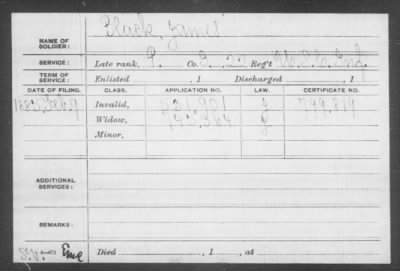 NAME OF SOLDIER: Black, James
SERVICE: Late rank, P. Co. E. 22 Reg't
TERM OF SERVICE: Enlisted , 1 Discharged , 1
DATE OF FILING. CLASS. APPLICATION NO. LAW. CERTIFICATE NO.
Invalid, 521,921 799,819
Widow, 743,364
Minor,
ADDITIONAL SERVICES:
REMARKS:
Died , 1 , at